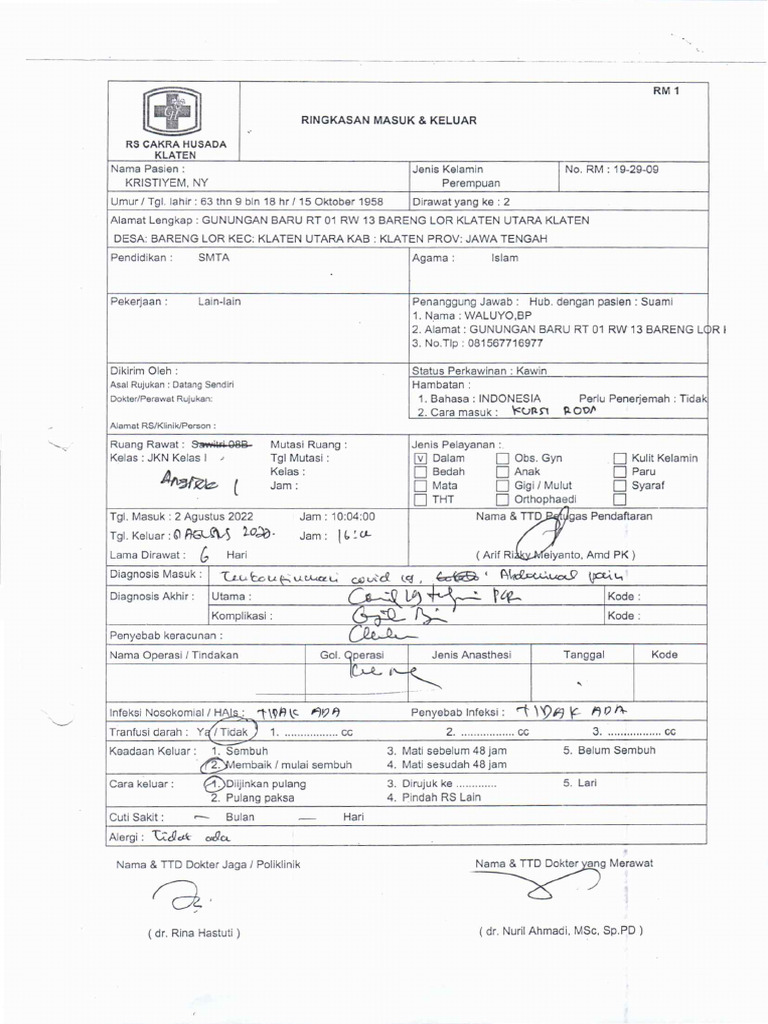 RM 1
RS CAKRA HUSADA
KLATEN
RINGKASAN MASUK & KELUAR
Nama Pasien :
KRISTIYEM, NY
Jenis Kelamin
Perempuan
No. RM : 19-29-09
Umur / Tgl. lahir : 63 thn 9 bln 18 hr / 15 Oktober 1958
Dirawat yang ke : 2
Alamat Lengkap : GUNUNGAN BARU RT 01 RW 13 BARENG LOR KLATEN UTARA KLATEN
DESA: BARENG LOR KEC: KLATEN UTARA KAB : KLATEN PROV: JAWA TENGAH
Pendidikan : SMTA
Agama : Islam
Pekerjaan : Lain-lain
Penanggung Jawab : Hub. dengan pasien : Suami
1. Nama : WALUYO,BP
2. Alamat : GUNUNGAN BARU RT 01 RW 13 BARENG LOR
3. No.Tlp : 081567716977
Dikirim Oleh :
Asal Rujukan : Datang Sendiri
Dokter/Perawat Rujukan:
Alamat RS/Klinik/Person :
Status Perkawinan : Kawin
Hambatan :
1. Bahasa : INDONESIA Perlu Penerjemah : Tidak
2. Cara masuk : KURSI RODA
Ruang Rawat : Sawitri 08B Mutasi Ruang :
Kelas : JKN Kelas I Tgl Mutasi :
Kelas :
Jam :
Jenis Pelayanan :
v Dalam Obs. Gyn Kulit Kelamin
Bedah Anak Paru
Mata Gigi / Mulut Syaraf
THT Orthophaedi
Tgl. Masuk : 2 Agustus 2022 Jam : 10:04:00
Tgl. Keluar : Jam :
Lama Dirawat : 6 Hari
Nama & TTD Petugas Pendaftaran
( Arif Rizky Meiyanto, Amd PK )
Diagnosis Masuk : Terkonfirmasi covid 19, Abdominal pain
Diagnosis Akhir : Utama : Covid 19 Kode :
Komplikasi : Kode :
Penyebab keracunan :
Nama Operasi / Tindakan Gol. Operasi Jenis Anasthesi Tanggal Kode
Infeksi Nosokomial / HAIs : TIDAK ADA Penyebab Infeksi : TIDAK ADA
Tranfusi darah : Ya / Tidak 1. ................ cc 2. ................ cc 3. ................ cc
Keadaan Keluar : 1. Sembuh 3. Mati sebelum 48 jam 5. Belum Sembuh
2. Membaik / mulai sembuh 4. Mati sesudah 48 jam
Cara keluar : 1. Diijinkan pulang 3. Dirujuk ke ............ 5. Lari
2. Pulang paksa 4. Pindah RS Lain
Cuti Sakit : — Bulan — Hari
Alergi : Tidak ada
Nama & TTD Dokter Jaga / Poliklinik
Nama & TTD Dokter yang Merawat
( dr. Rina Hastuti )
( dr. Nuril Ahmadi, MSc, Sp.PD )